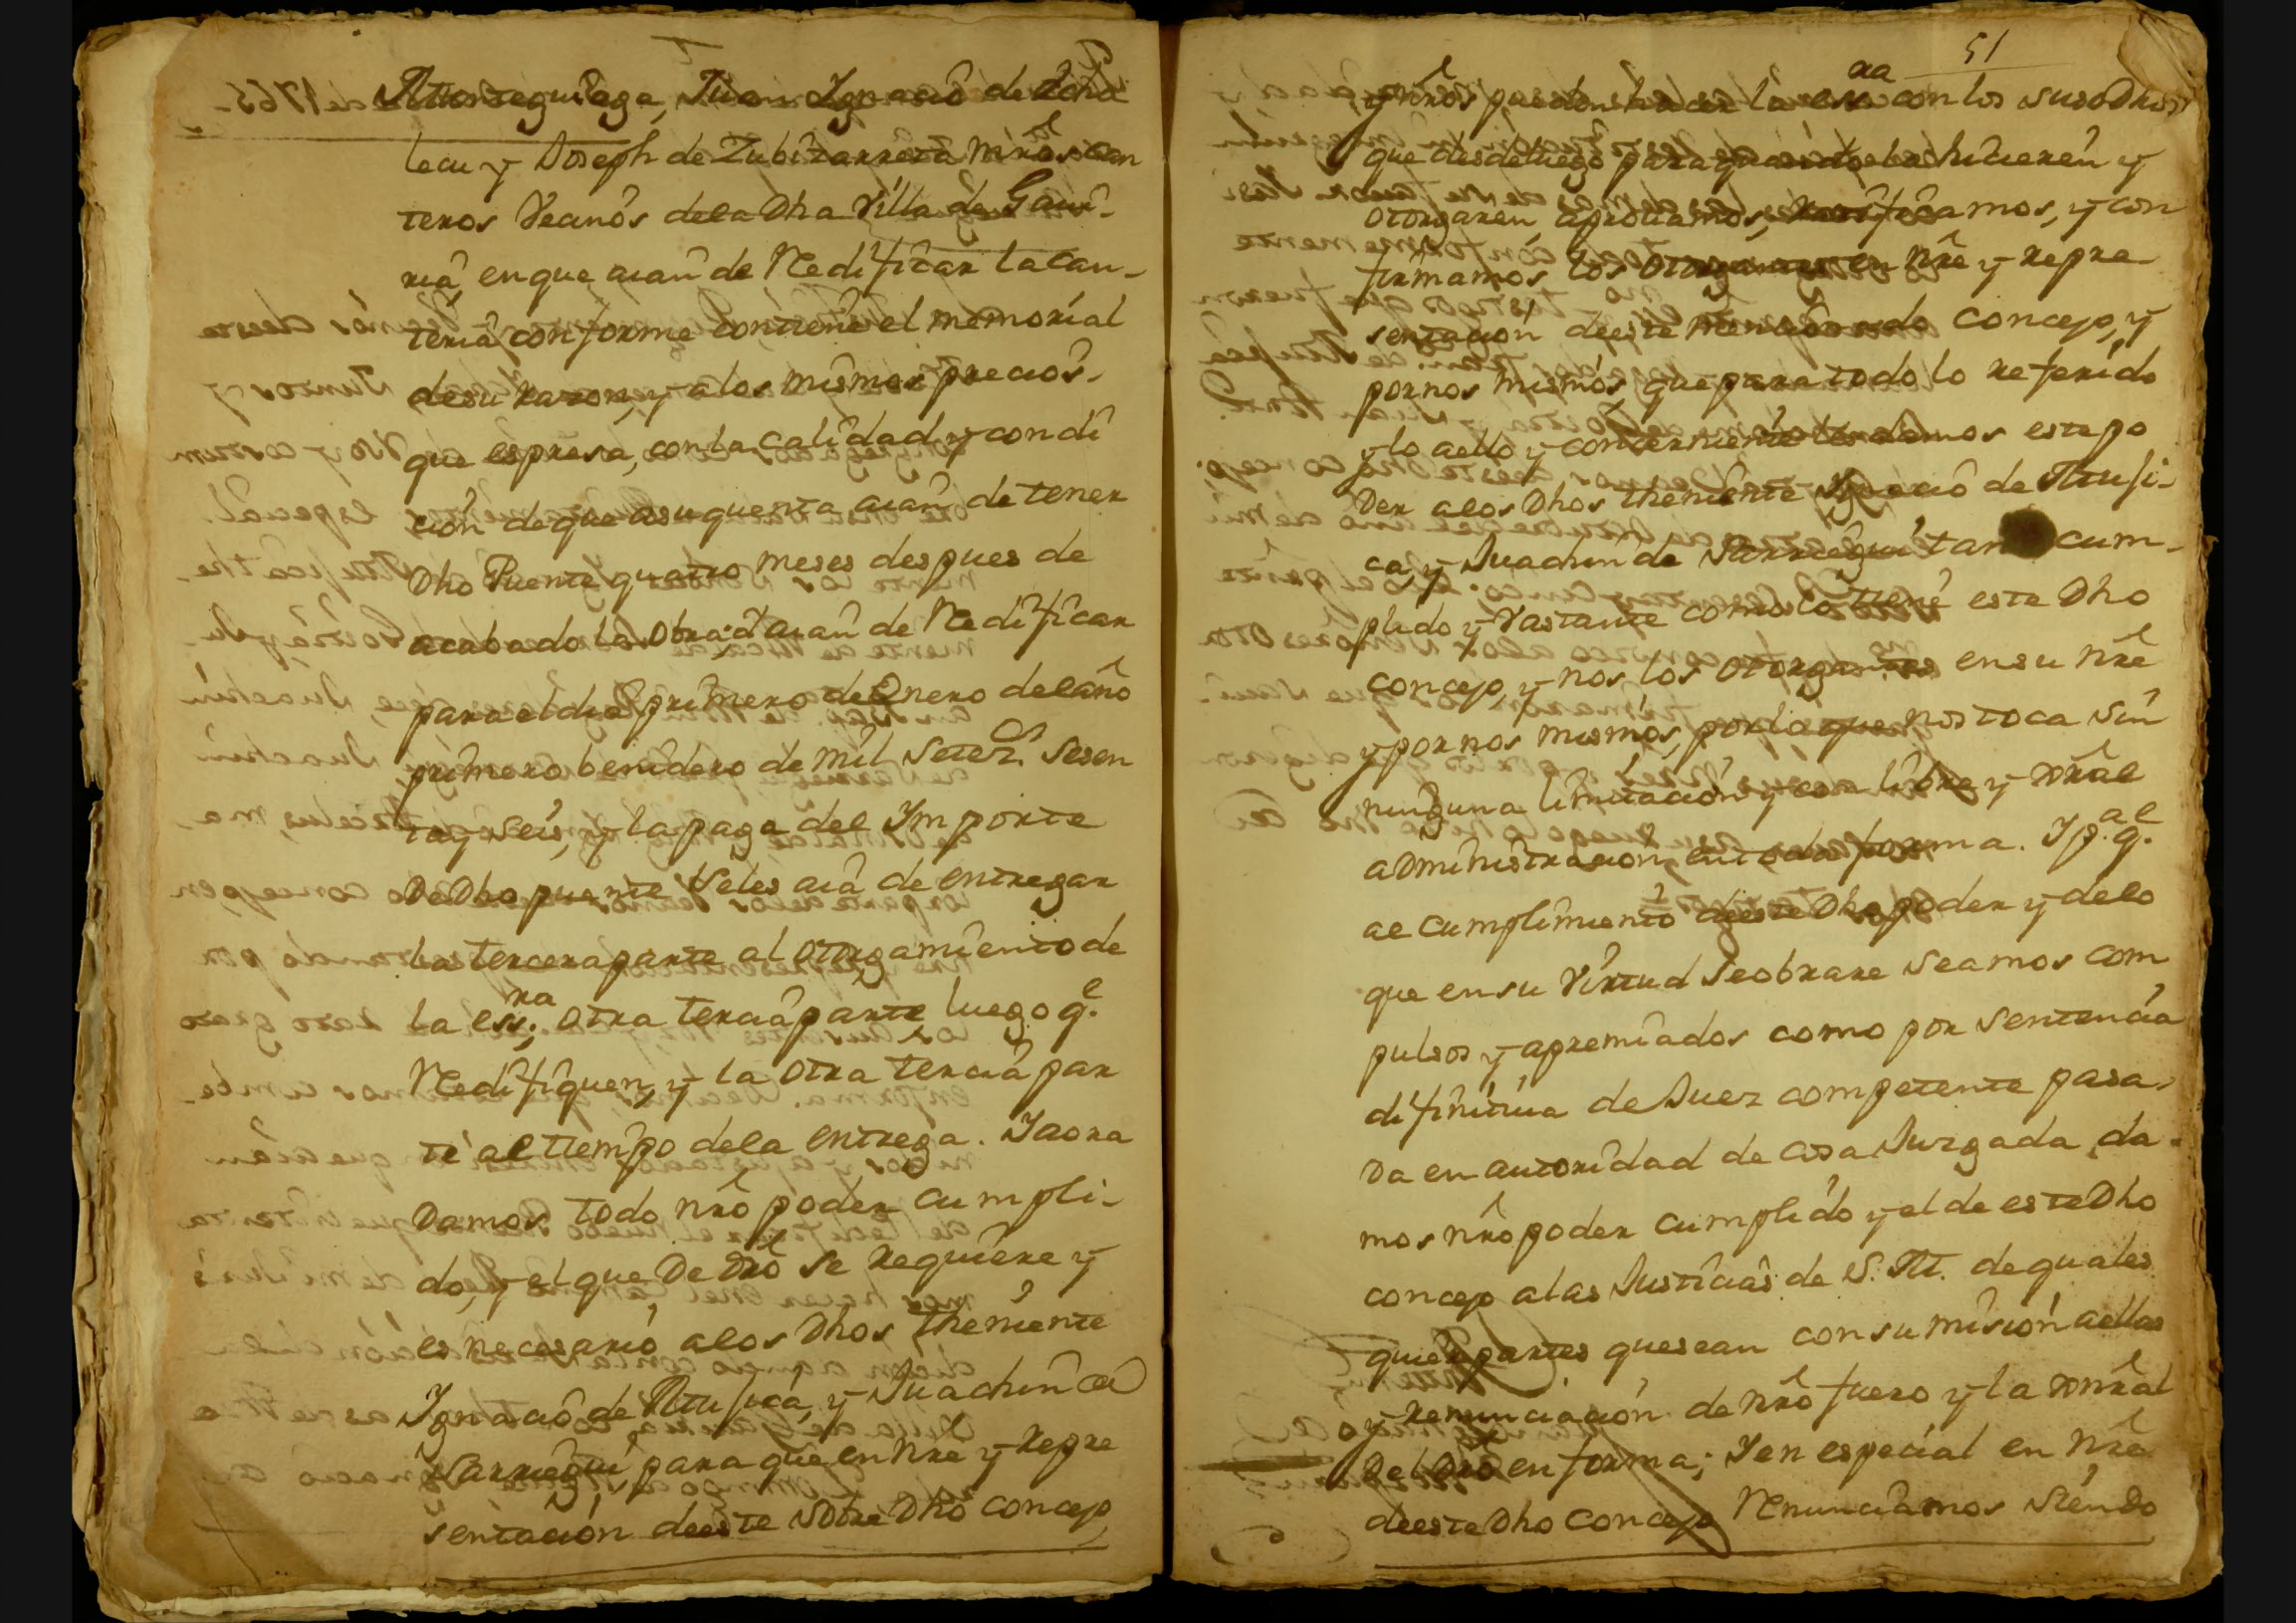 Juan Ignacio de Echa
lecu y Joseph de Zubizarreta mr̃os can
teros Vecinôs dela Dha Villa de Gaui-
ria, enque aian de Redificar la Can-
teria conforme contiene el memorial
desu razon, y alos mismos precios
que espresa, con la calidad y condi
cion de que asu quenta aian de tener
Dho Puente quatro meses despues de
acabado la obra; q̃ aian de Redificar
para el dia primero de Enero del año
primero benidero de mil Setez.os Sesen
ta y seis, y la paga del Importe
De Dho puente Seles aia de entregar
la tercera parte al otorgamiento de
la ess.ra; otra tercia parte luego q.e
Redifiquen, y la otra tercia par
te al tiempo dela entrega. I aora
Damos todo nr̃o poder cumpli-
do, y el que De Dr̃o se requiere y
es necesario alos Dhos theniente
Ignacio de Mujica, y Juachin de
Sarriegui, para que en nr̃e y repre
sentación deeste sobre Dho concejo
51
y nr̃os puedan hacer la ess.ra con los suso Dhos
que desde luego para quando la hicieren y
otorgaren, aprouamos, ratificamos, y con
firmamos los otorgantes en nr̃e y repre
sentacion deeste mencionado Concejo, y
pornos mismos, que para todo lo referido
y lo aello y concerniente les damos este po
Der alos Dhos theniente Ignacio de Muji-
ca, y Juachin de Sarriegui tan cum-
plido y Vastante como lo tiene este Dho
concejo, y nos los otorgantes ensu nr̃e
y por nos mismos, por lo que nos toca sin
ninguna limitacion y con libre y xñal
administracion, en toda forma. I p.a q.e
al cumplimiento deeste Dho poder y delo
que ensu Virtud Seobrare Seamos com
pulsos y apremiados como por Sentencia
difinitiua de Juez competente pasa-
Da en autoridad de cosa Juzgada, da-
mos nr̃o poder cumplido y el de este Dho
concejo alas Justicias de S. M. de quales
quier partes quesean con sumision aellas
y renunciacion de nr̃o fuero y la xñral
Del Dr̃o en forma; I en especial en nr̃e
deeste Dho Concejo Renunciamos siendo